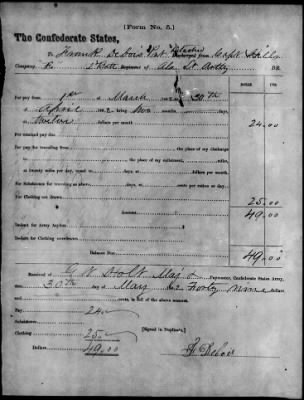 (Form No. 5.)
The Confederate States,
To Francis R. DuBois Pvt Capt. Hill's
Company, 1st Batt Regiment of Ala Lt Artly DR.
For pay from 1st of March 30th
of April 2 being two months
at twelve dollars per month 24.00
For retained pay due
For pay for travelling from the place of my discharge
to the place of my enlistment, miles,
at twenty miles per day, equal to days, at dollars per month.
For Subsistence for traveling as above, days, at cents per ration or day.
For Clothing not drawn 25.00
Amount, 49.00
Deduct for Army Asylum
Deduct for Clothing overdrawn
Balance Due 49.00
Received of G W Holt Maj & Paymaster, Confederate States Army,
this 30th day of May 62 Forty nine
dollars and cents, in full of the above account.
Pay 24
Subsistence
Clothing 25
Dollars 49.00
[Signed in Duplicate.]
DuBois